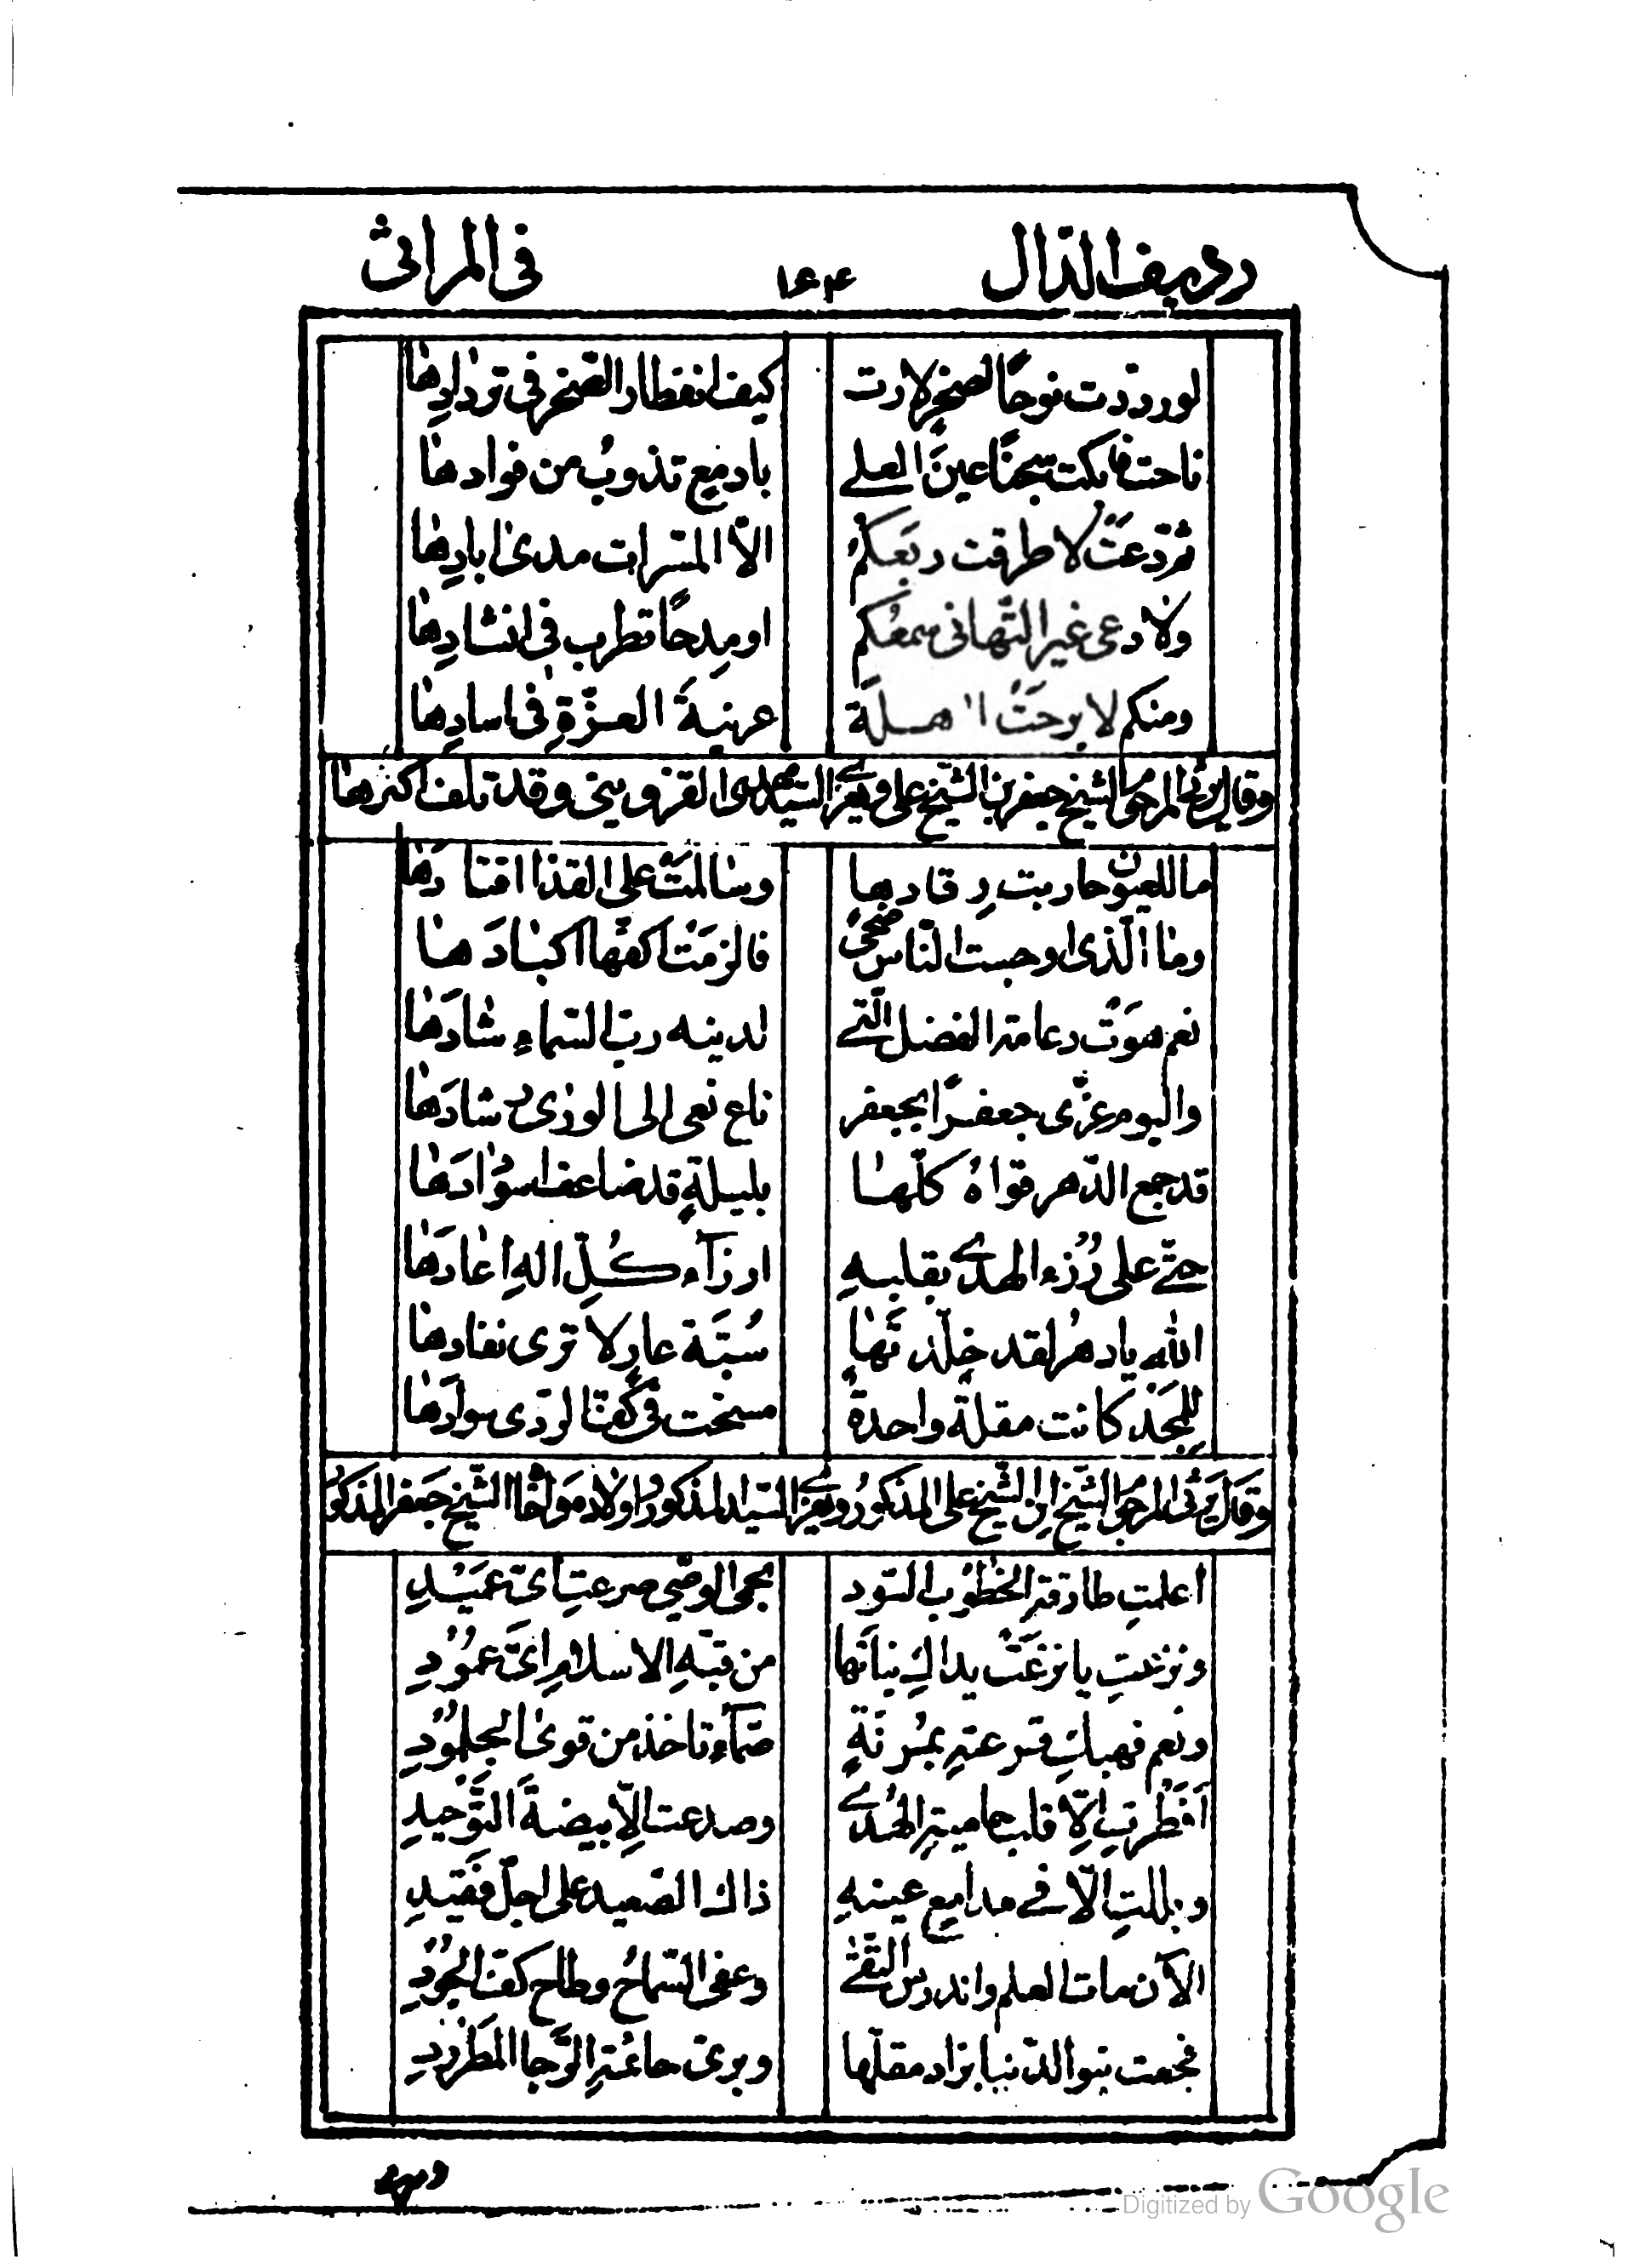 رديف الدال ١٦٤ في المراثي
لو رددت نوحًا لصخرٍ لارت كيف انفطار الصخر في تردادِها
ناحت فابكت شجنًا عينَ العلى بادمعٍ تذوبُ من فوادها
ثم دعت لا طرقت ربعكم الّا المسرات مدى ابادِها
ولا دعى غير التهانى سمعكم او مدحًا تطرب في انشادِها
ومنكم لا برحت اهلة عرينةَ العزّةِ في اسادِها
وقال يرثي المرحوم الشيخ جعفر بن الشيخ على ويعزى السيد مهدى القزويني وقد تلف اكثرها
ما للعيون حاربت رقادها وسالمت على القذا اقتادها
وما الّذى اوحبست الناس ضحىً فالزمَت اكفّها اكبادَها
نعم هوَت دعامة الفضل الّتي لدينه ربّ السماءِ شادَها
واليوم عزّى جعفرًا بجعفر ناعٍ نعى الى الورى رشادَها
قد جمع الدّهر قواهُ كلّها بليلةٍ قد ضاعف سوادَها
حتّى على رُزء الهدى بقلبهِ ارزآء كُلِّ الهِ اعادَها
اللّه يا دهرُ لقد خلّدتها سُبّة عارٍ لا ترى نفادها
للمجد كانت مقلة واحدةً مسخت في كفّ الردى سوادَها
وقال يرثي المرحوم الشيخ ابن الشيخ على المذكور ويعزى السيد المذكور واولاده مولفا الشيخ جعفر المذكور
اعلمتِ طارقةِ الخطوُب السود بحمى الوصي صرعتِ اىّ عميدِ
ونزعتِ يا نزعَتْ يداكِ بناتها من قبّهِ الاسلامِ اىّ عموُدِ
ونعم فهبكِ قرعتهِ بمُرنّةٍ صمّآء تاخذ من قوى الجلموُدِ
اَفَطَرتِ الّا قلب حاميةِ الهُدى وصدعت الّا بيضةَ التوَّحيدِ
وبللتِ الّا في مدامع عينهِ ذاك الصعيد على اجلّ فقيدِ
الآن مات العلم واندرس التّقى وعفى السماحُ وطاح كفّ الجُودِ
فجعت بنو الدّنيا بزاد مقلّها وبرىّ حائمةِ الرَّجا المطرُودِ